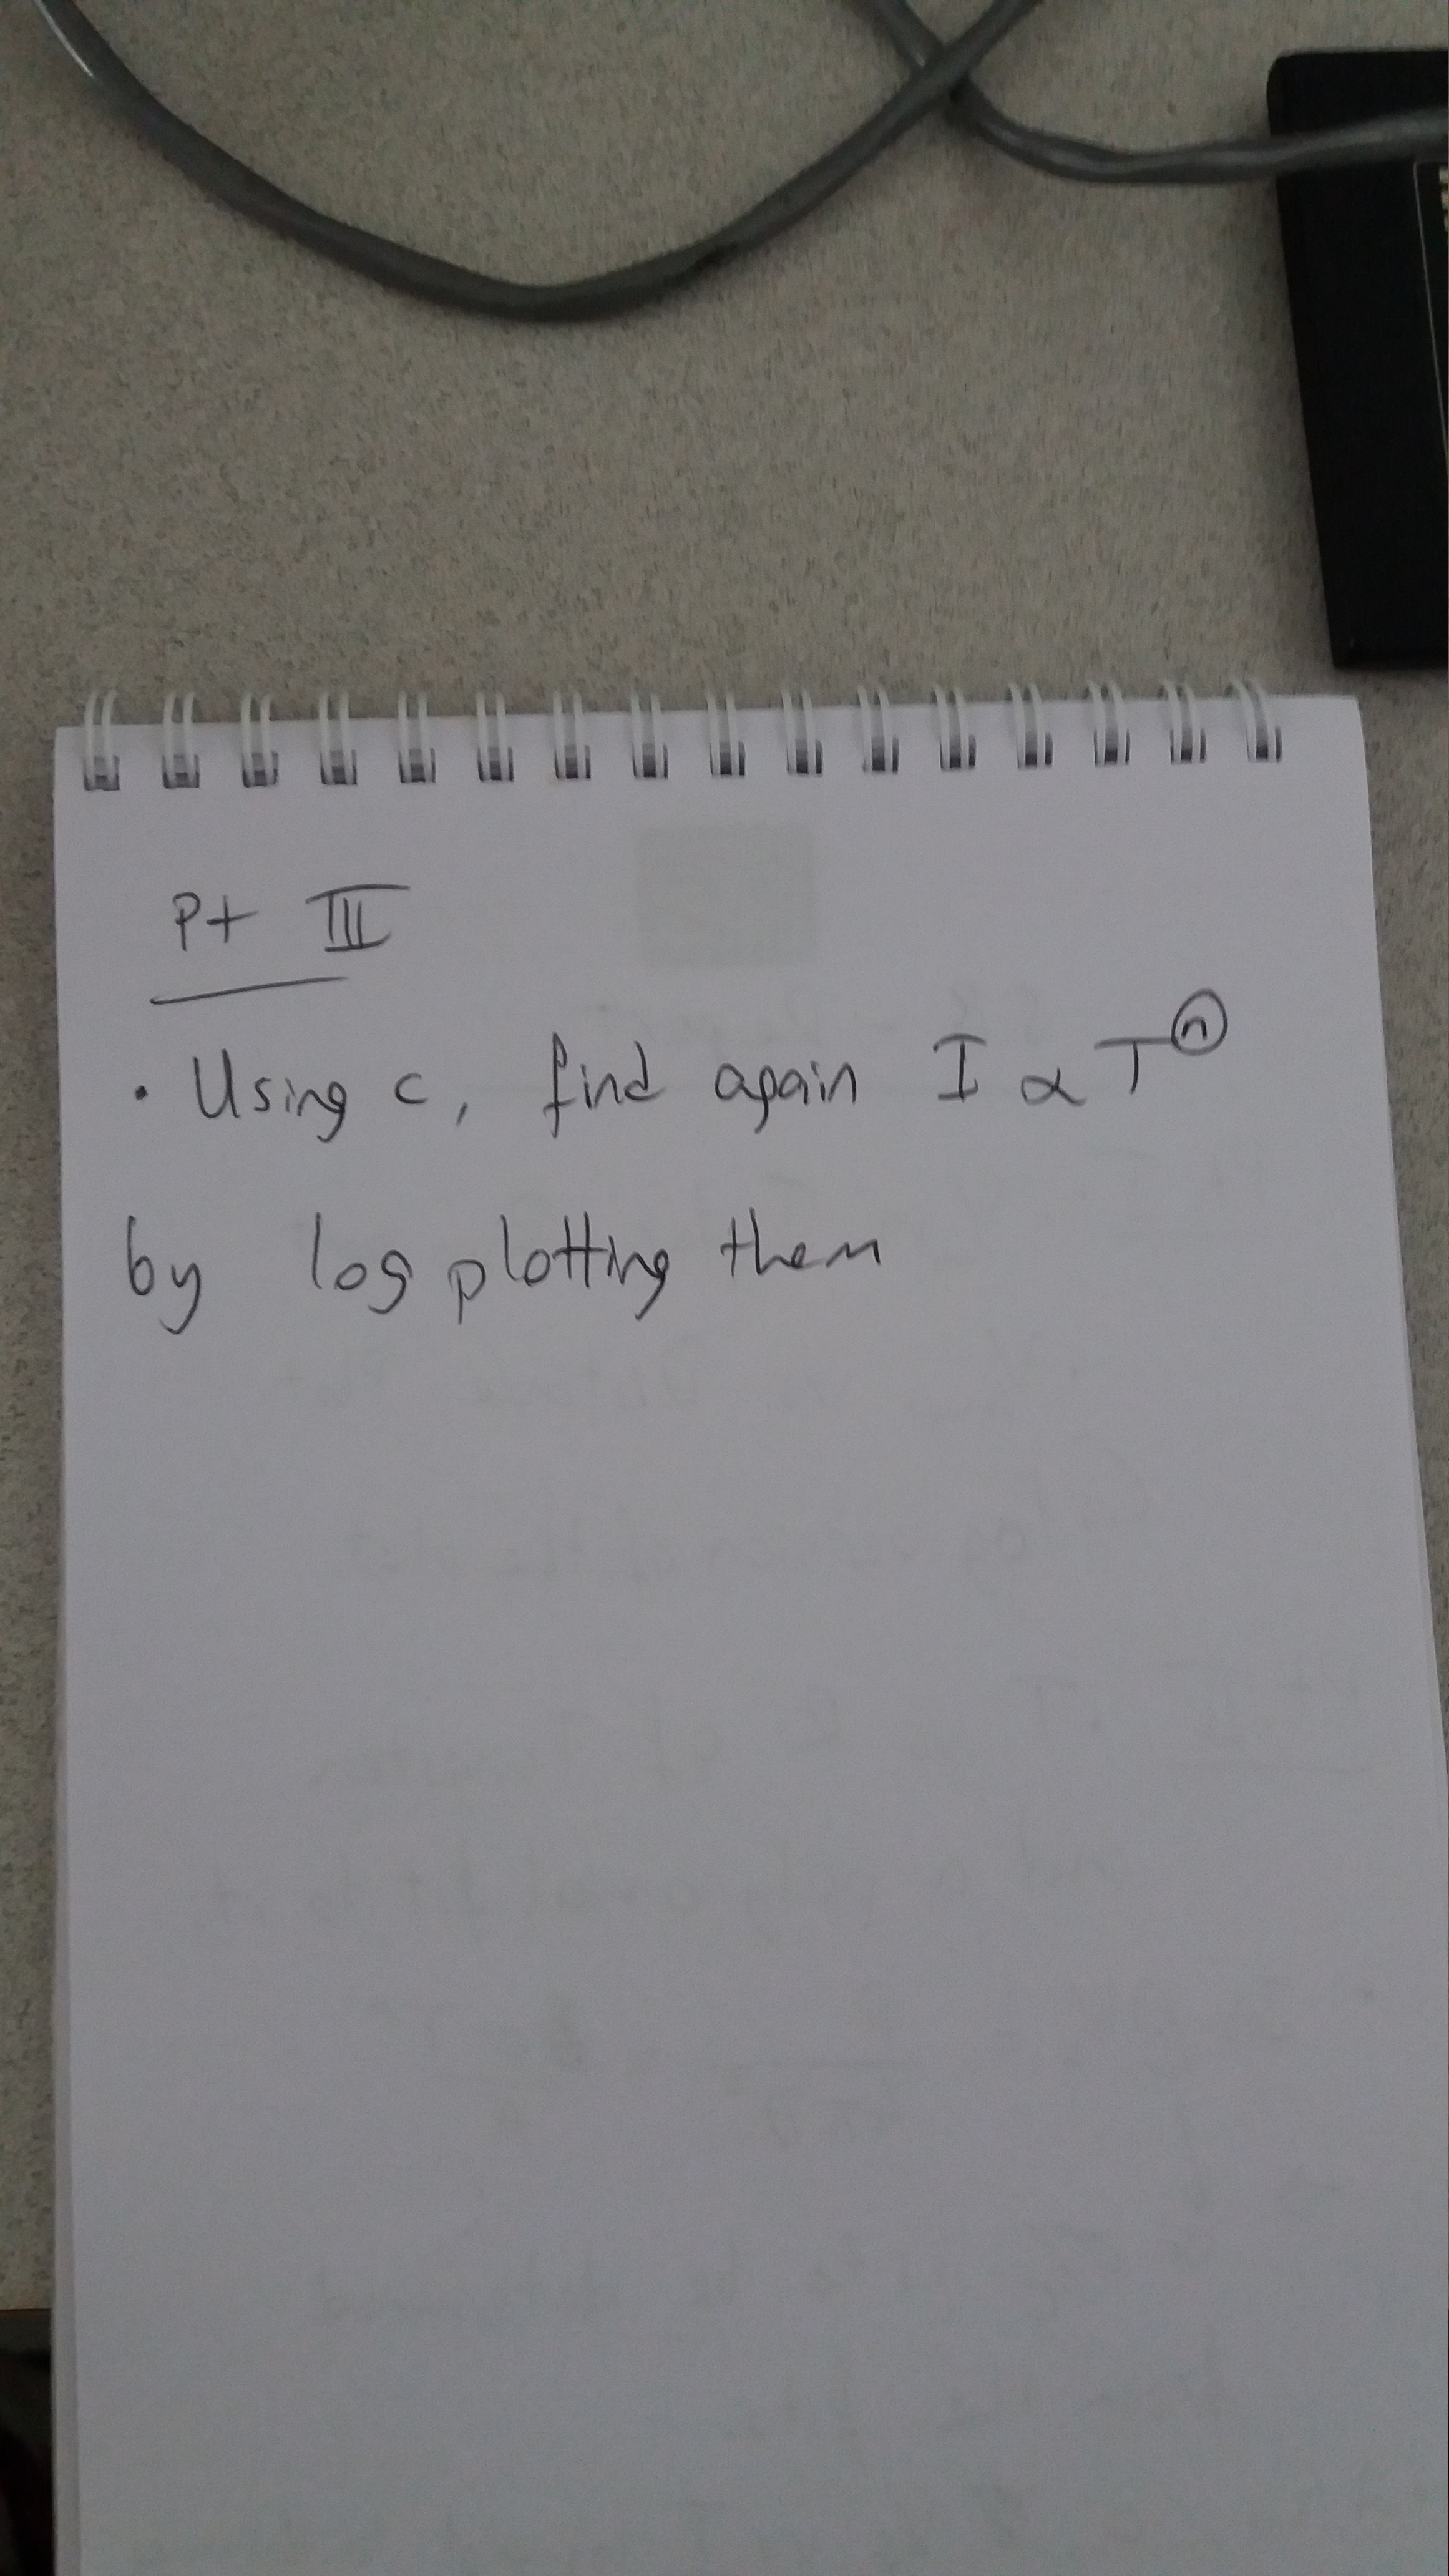 Pt III
• Using c, find again I ∝ Tⁿ
by log plotting them